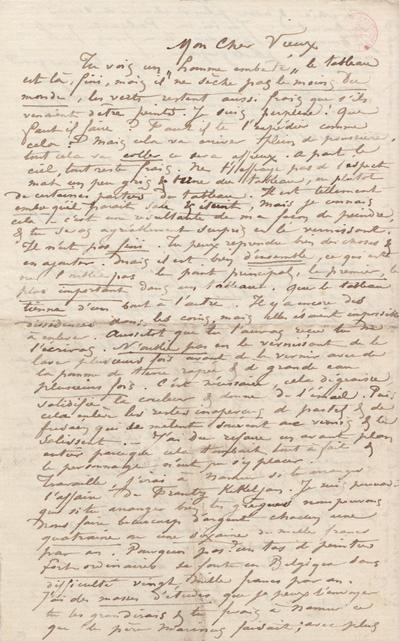 Mon Cher Vieux
Tu vois un homme embêté, le tableau
est là, fini, mais il ne sèche pas le moins du
monde, les verts restent aussi frais que s'ils
venaient d'être peints. Je suis perplexe. Que
faut il faire ? Faut il te l'expédier comme
cela ? mais cela va arriver plein de poussière,
tout cela va coller ce sera affreux. A part le
ciel, tout reste frais. Ne t'effraye pas de l'aspect
mat un peu gris & terne du tableau ou plutôt
de certaines parties du tableau. Il est tellement
embu qu'il paraît sale & éteint, mais je connais
cela c'est une résultante de ma façon de peindre,
& tu seras agréablement surpris en le vernissant.
Il n'est pas fini tu peux reprendre bien des choses &
en ajouter. Mais il est bien d'ensemble, ce qui est
ne l'oublie pas le point principal, le premier, le
plus important dans un tableau. Que le tableau
tienne d'un bout à l'autre. Il y a encore des
dissidences dans les coins, mais elles étaient impossibles
à enlever. Aussitôt que tu l'auras reçu tu me
l'écriras. N'oublie pas en le vernissant de le
laver plusieurs fois avant de le vernir avec de
la pomme de terre rapée & de grande eau
plusieurs fois. C'est nécessaire, cela dégraisse
solidifie la couleur & donne de l'émail. Puis
cela enlève les restes inaperçus de pastel & de
fusain qui se mêlent souvent au vernis & le
salissent ... J'ai du refaire un avant plan
entier parce que cela tombait tout à fait &
le personnage n'eut pu s'y placer.
Travaille, j'irai à Namur si tu arranges
l'affaire de Frantz Kekeljan. Je suis
que si tu arranges bien les nous pouvons
nous faire beaucoup d'argent chacun une
quatraine ou une dizaine de mille francs
par an. Pourquoi pas ? un tas de peintres
fort ordinaires se font en Belgique sans
difficulté vingt mille francs par an.
J'ai des masses d'études que je peux t'envoyer
tu les grandirais & tu irais à Namur ce
que le père faisait, avec plus